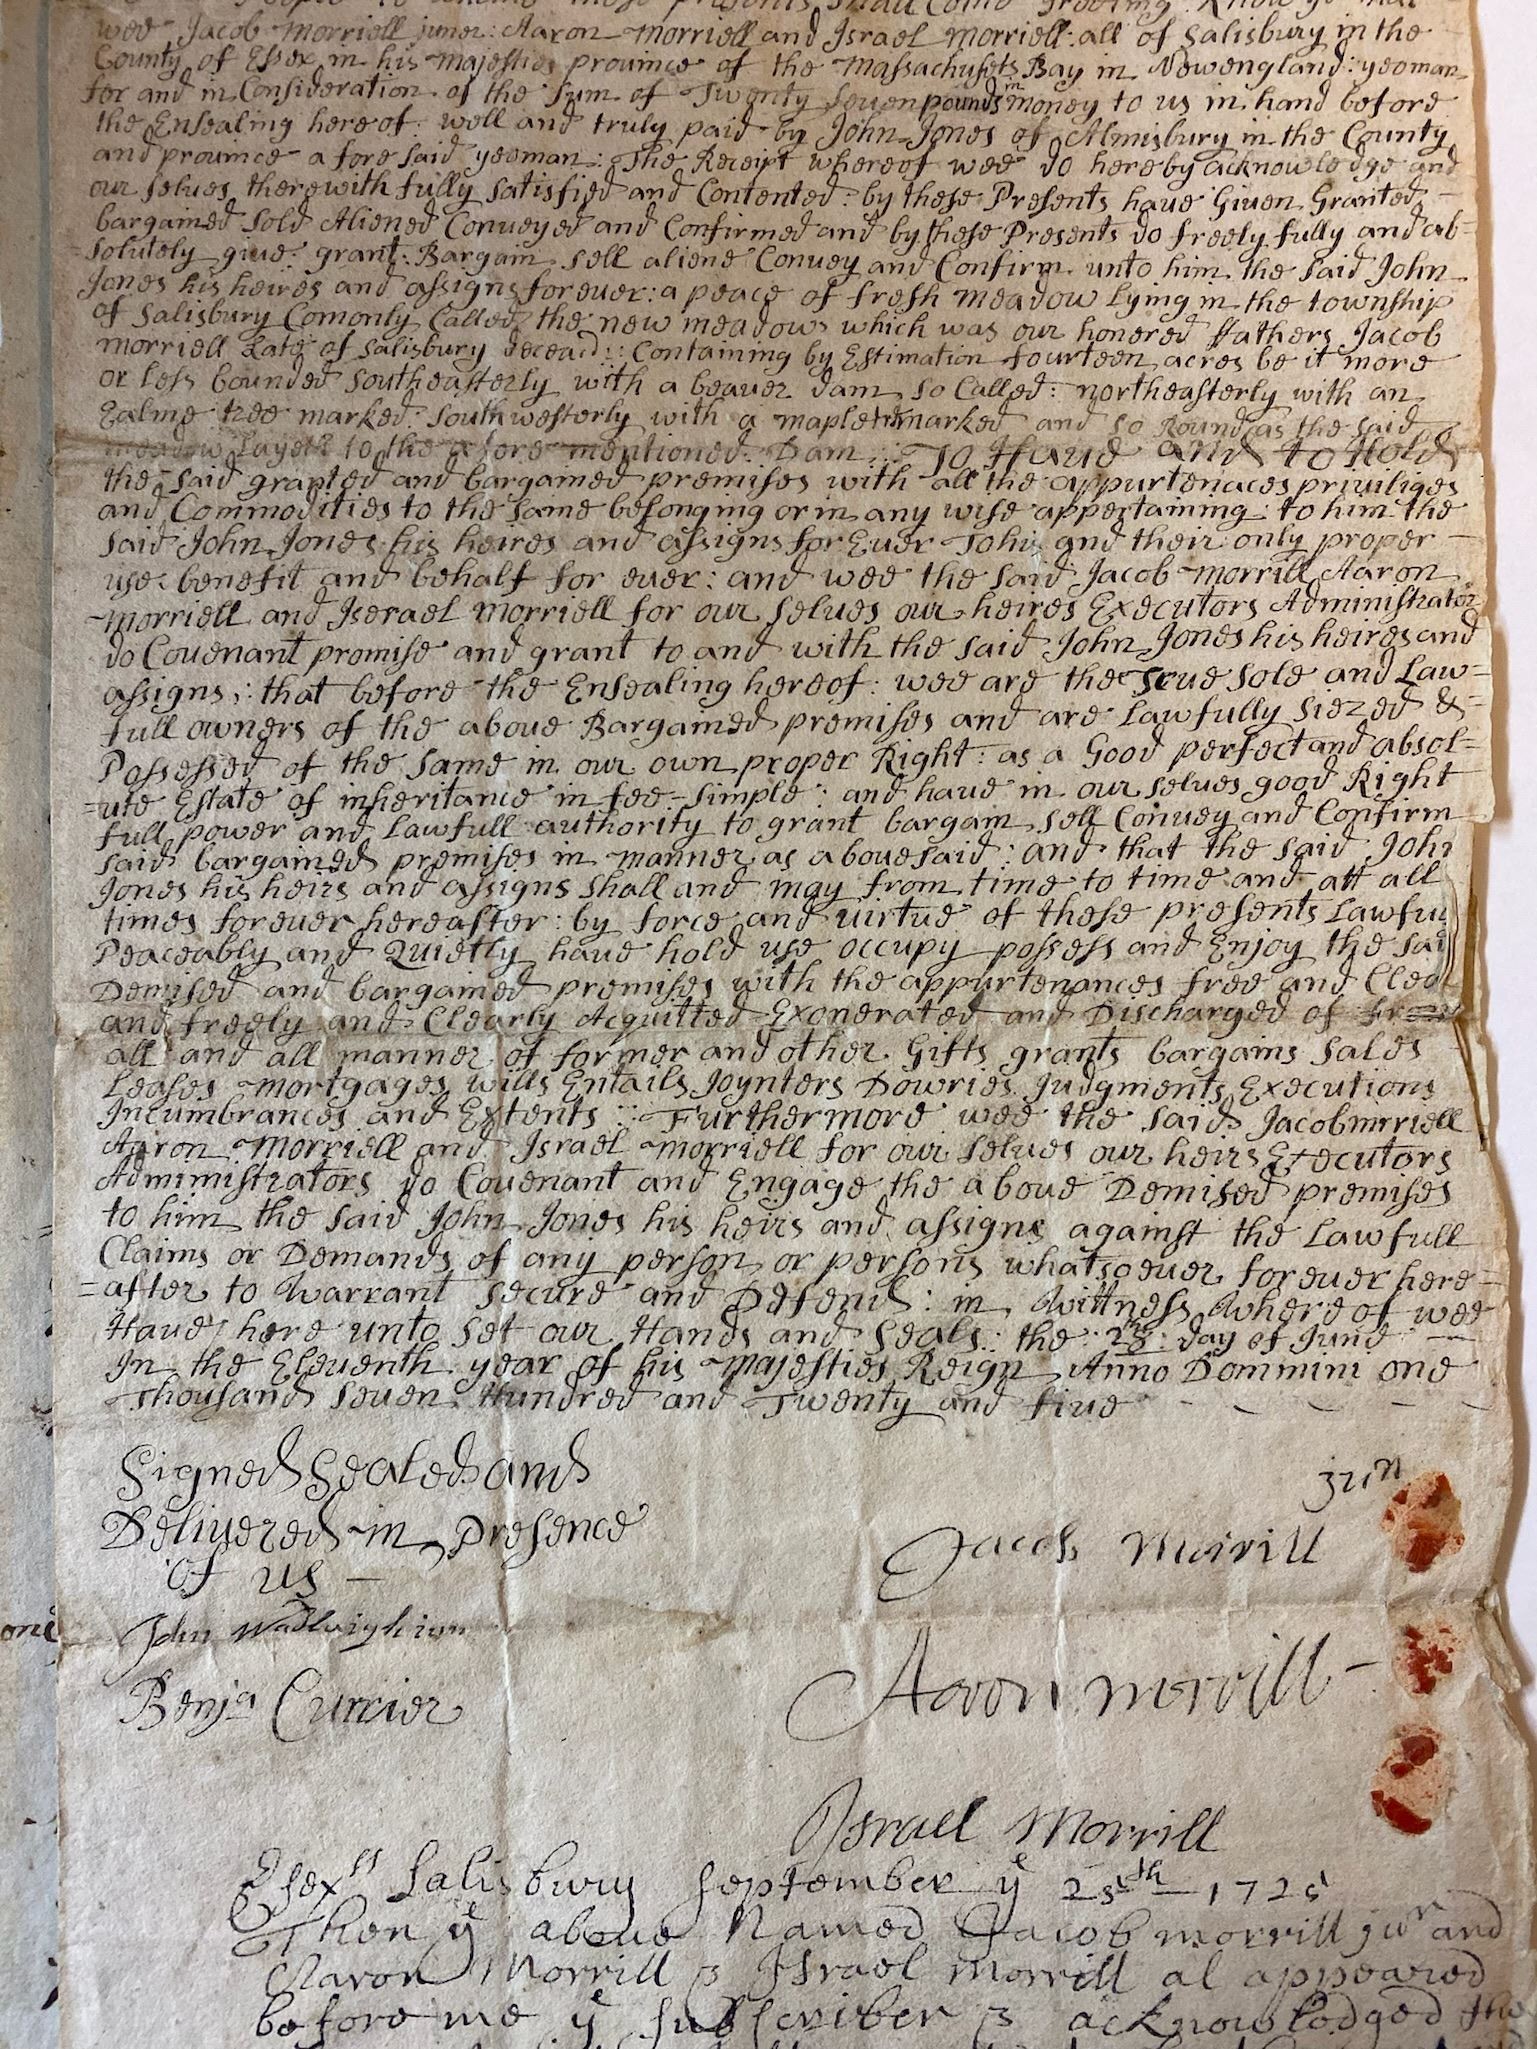 People to whome these presents shall come greeting Know ye that
wee Jacob Morriell juner: Aaron Morriell and Israel Morriell: all of Salisbury in the
County of Essex in his Majesties prouince of the Massachusets Bay in Newengland: yeoman
for and in Consideration of the Sum of Twenty Seuen pounds in money to us in hand before
the Ensealing hereof: well and truly paid by John Jones of Almsbury in the County
and prouince afore said yeoman: The Receipt whereof wee do hereby acknowledge and
our selues therewith fully satisfied and Contented: by these Presents haue Giuen Granted
bargained Sold Aliened Conueyed and Confirmed and by these Presents do freely fully and ab=
=solutely giue: grant: Bargain sell aliene Conuey and Confirm unto him the Said John
Jones his heires and assigns foreuer: a peace of fresh meadow lying in the township
of Salisbury Comonly Called the new meadows which was our honored ffathers Jacob
morriell Late of Salisbury deceasd:: Containing by Estimation fourteen acres be it more
or less bounded Southeasterly with a beauer dam so Called: northeasterly with an
Ealme tree marked: Southwesterly with a maple tre marked and so Round as the said
meadow Layeth to the afore mentioned Dam:: To Haue and to Hold
the said granted and bargained premises with all the appurtenaces priuiliges
and Commodities to the same belonging or in any wise appertaining: to him the
said John Jones his heires and assigns for Euer To his and their only proper
use benefit and behalf for euer: and wee the said Jacob Morrill Aaron
Morriell and Iserael Morriell for our selues our heires Executors Administrators
do Couenant promise and grant to and with the said John Jones his heires and
assigns: that before the Ensealing hereof: wee are the True Sole and Law=
full owners of the aboue Bargained premises and are Lawfully Siezed &
Possessed of the same in our own proper Right: as a Good perfect and absol=
=ute Estate of inheritance in fee-simple: and haue in our selues good Right
full power and Lawfull authority to grant bargain sell Conuey and Confirm
said bargained premises in manner as abouesaid: and that the said John
Jones his heirs and assigns shall and may from time to time and att all
times foreuer hereafter: by force and uirtue of these presents Lawfu
Peaceably and Quietly haue hold use occupy possess and Enjoy the Said
Demised and bargained premises with the appurtenances free and Clea
and freely and Clearly Acquitted Exonerated and Discharged of from
all and all manner of former and other Gifts grants bargains Sales
Leases Mortgages wills Entails Joynters Dowries Judgments Executions
Incumbrances and Extents:: Furthermore wee the said Jacob mrriell
Aaron Morriell and Israel Morriell for our selues our heirs Executors
Administrators do Couenant and Engage the aboue Demised premises
to him the said John Jones his heirs and assigns against the Lawfull
Claims or Demands of any person or persons whatsoeuer foreuer here=
=after to Warrant Secure and Defend: in Wittness Whereof wee
Haue here unto Set our Hands and Seals: the: 28: day of June
In the Eleuenth year of his Majesties Reign Anno Dommini one
Thousand Seuen Hundred and Twenty and fiue
Signed Sealed and
Deliuered in Presence
of us
Jun
Jacob Morrill
John Wadleigh
Benja Currier
Aaron morrill
Israel Morrill
Essex ss Salisbury September ye 25th 1725
Then ye aboue Named Jacob morrill jur and
Aaron Morrill & Israel Morrill al appeared
before me ye subscriber & acknowledged the